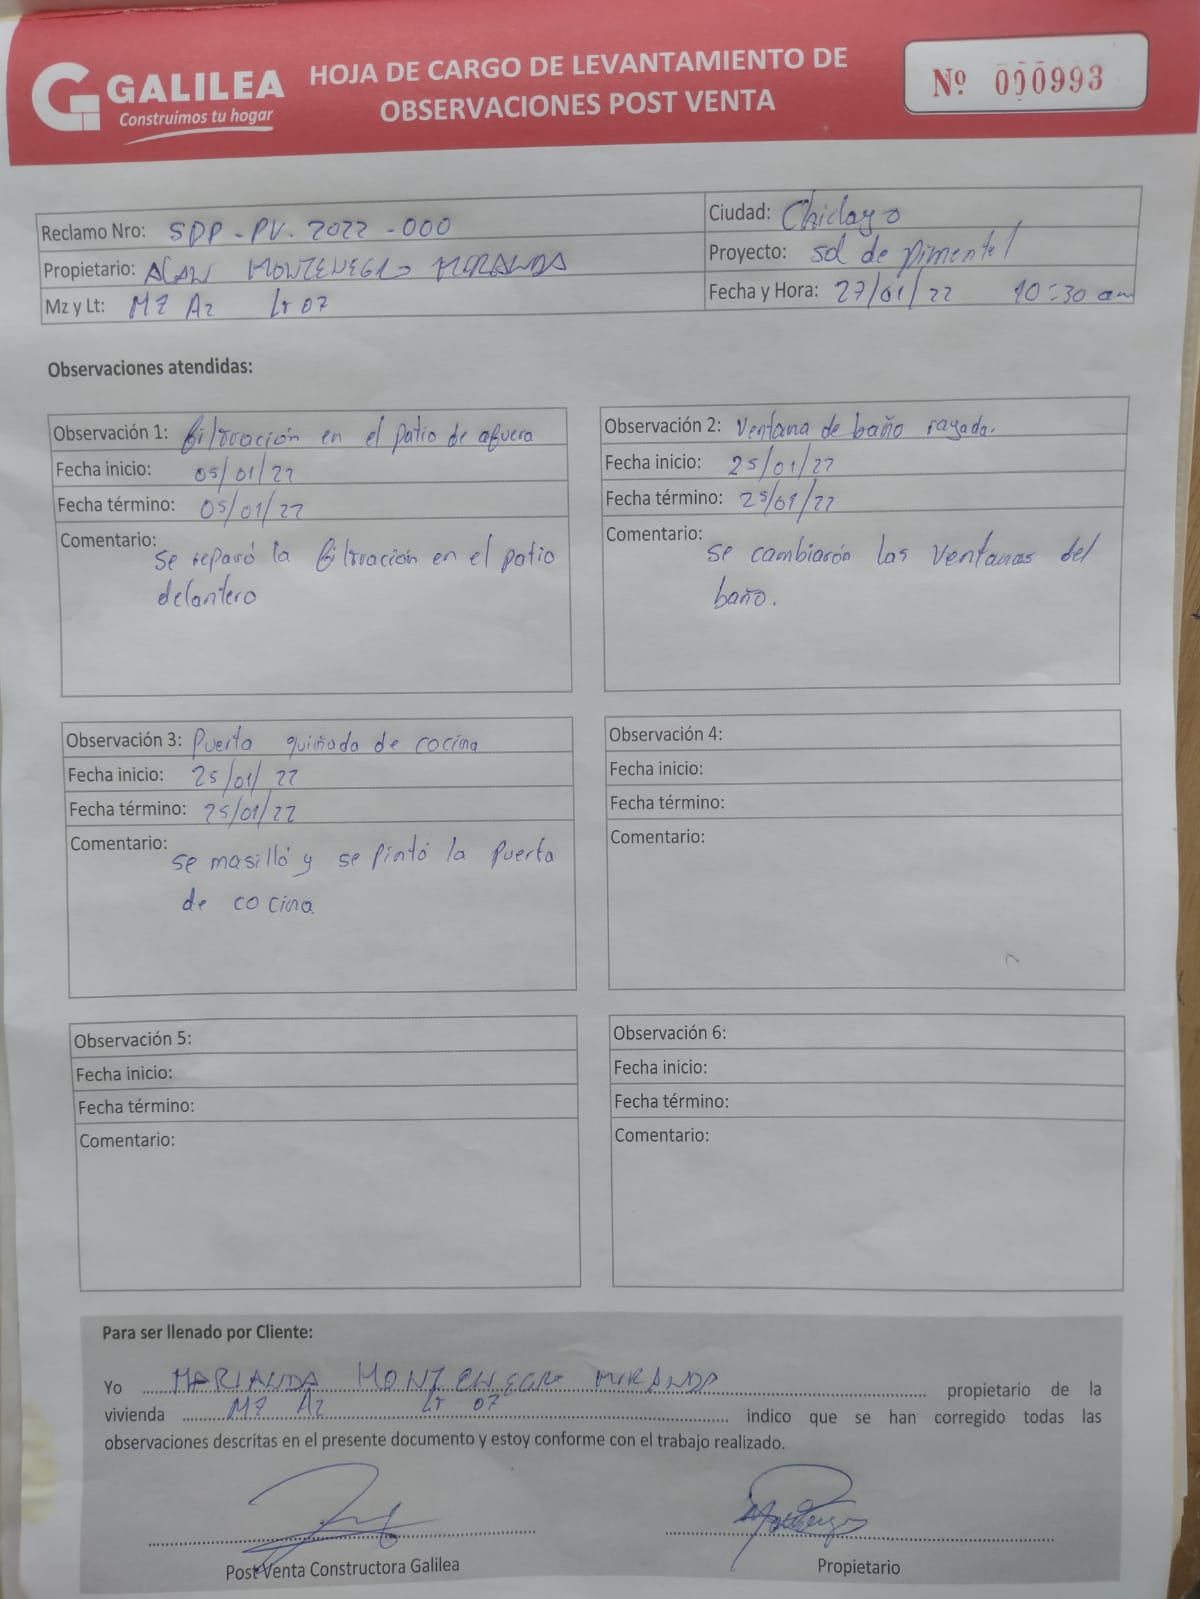 GALILEA
Construimos tu hogar
HOJA DE CARGO DE LEVANTAMIENTO DE
OBSERVACIONES POST VENTA
Nº 000993
Reclamo Nro: SDP-PV. 2022-000
Propietario: ALAN MONTENEGRO MIRANDA
Mz y Lt: MZ A2 Lt 07
Ciudad: Chiclayo
Proyecto: sol de pimentel
Fecha y Hora: 27/01/22 10:30 am
Observaciones atendidas:
Observación 1: filtración en el patio de afuera
Fecha inicio: 05/01/22
Fecha término: 05/01/22
Comentario: se reparó la filtración en el patio
delantero
Observación 2: Ventana de baño rayada.
Fecha inicio: 25/01/22
Fecha término: 25/01/22
Comentario: se cambiarón las ventanas del
baño.
Observación 3: Puerta quiñada de cocina
Fecha inicio: 25/01/22
Fecha término: 25/01/22
Comentario: se masilló y se pintó la puerta
de cocina
Observación 4:
Fecha inicio:
Fecha término:
Comentario:
Observación 5:
Fecha inicio:
Fecha término:
Comentario:
Observación 6:
Fecha inicio:
Fecha término:
Comentario:
Para ser llenado por Cliente:
Yo MARIANDA MONTENEGRO MIRANDA propietario de la
vivienda MZ A2 Lt 07 indico que se han corregido todas las
observaciones descritas en el presente documento y estoy conforme con el trabajo realizado.
Post Venta Constructora Galilea
Propietario